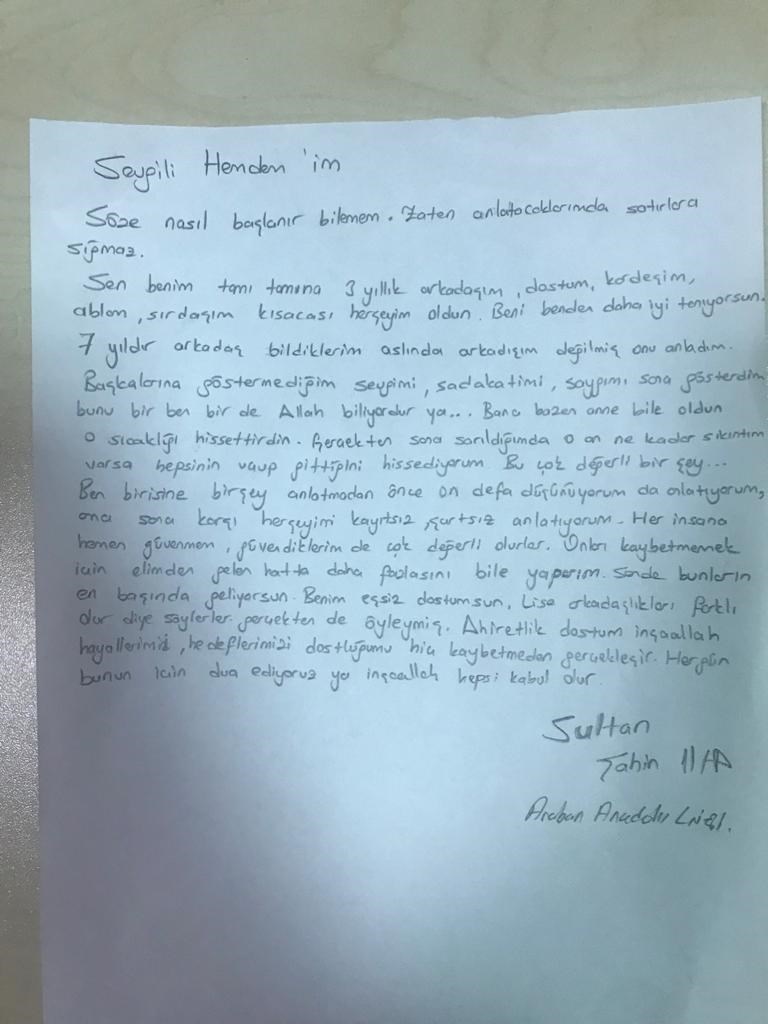 Sevgili Hemdem 'im
Söze nasıl başlanır bilemem. Zaten anlatacaklarımda satırlara
sığmaz.
Sen benim tamı tamına 3 yıllık arkadaşım, dostum, kardeşim,
ablam, sırdaşım kısacası herşeyim oldun. Beni benden daha iyi tanıyorsun.
7 yıldır arkadaş bildiklerim aslında arkadışım değilmiş onu anladım.
Başkalarına göstermediğim sevgimi, sadakatimi, saygımı sana gösterdim
bunu bir ben bir de Allah biliyordur ya... Bana bazen anne bile oldun
o sıcaklığı hissettirdin. Gerçekten sana sarıldığımda o an ne kadar sıkıntım
varsa hepsinin gittiğini hissediyorum. Bu çok değerli bir şey...
Ben birisine birşey anlatmadan önce on defa düşünüyorum da anlatıyorum,
ama sana karşı herşeyimi kayıtsız, şartsız anlatıyorum. Her insana
hemen güvenmem, güvendiklerim de çok değerli olurlar. Onları kaybetmemek
için elimden gelen hatta daha fazlasını bile yaparım. Sende bunların
en başında geliyorsun. Benim eşsiz dostumsun. Lise arkadaşlıkları farklı
olur diye söylerler gerçekten de öyleymiş. Ahiretlik dostum inşaallah
hayallerimizi, hedeflerimizi dostluğumu hiç kaybetmeden gerçekleşir. Hergün
bunun için dua ediyoruz ya inşaallah hepsi kabul olur.
Sultan
11/A
Araban Anadolu Lisesi.